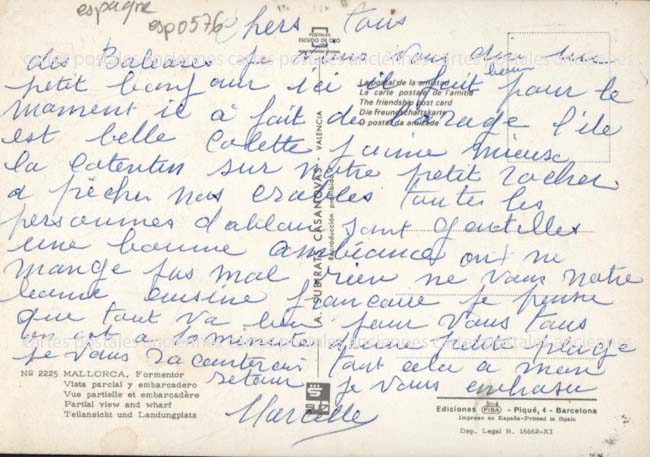 espagne
esp0576
chers tous
POSTALES
ESCUDO DE ORO
des Baleares je viens vous dire un
petit bonjour ici il fait beau pour le
moment il a fait de l'orage l'île
est belle Colette j'aime mieux
la cotentin sur notre petit rocher
a pêcher nos crables toutes les
personnes sont gentilles
une bonne ambiance on ne
mange pas mal rien ne vaus notre
bonne cuisine francaise je pense
que tout va bien pour vous tous
on est a 10 minutes petite plage
je vous raconterais tout cela a mon
retour je vous embrasse
Marcelle
La postal de la amistad
La carte postale de l'amitié
The friendship post card
Die Freundschaftskarte
O postal da amizade
A. SUBIRATS CASANOVAS - VALENCIA
Reproducción prohibida
cartes postales anciennes cartes postales anciennes
Nº 2225 MALLORCA, Formentor
Vista parcial y embarcadero
Vue partielle et embarcadère
Partial view and wharf
Teilansicht und Landungplatz
Ediciones FISA - Piqué, 4 - Barcelona
Impreso en España-Printed in Spain
Dep. Legal B. 16662-XI